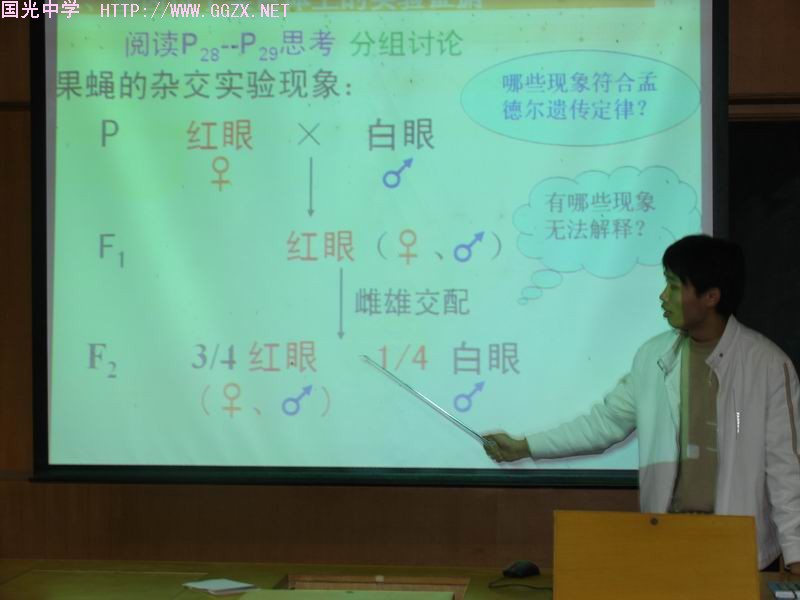 国光中学 HTTP://WWW.GGZX.NET
体上的实验证据
阅读P28--P29思考 分组讨论
果蝇的杂交实验现象：
哪些现象符合孟
德尔遗传定律？
P 红眼 × 白眼
♀ ♂
有哪些现象
无法解释？
F1 红眼（♀、♂）
雌雄交配
F2 3/4 红眼 1/4 白眼
（♀、♂） ♂